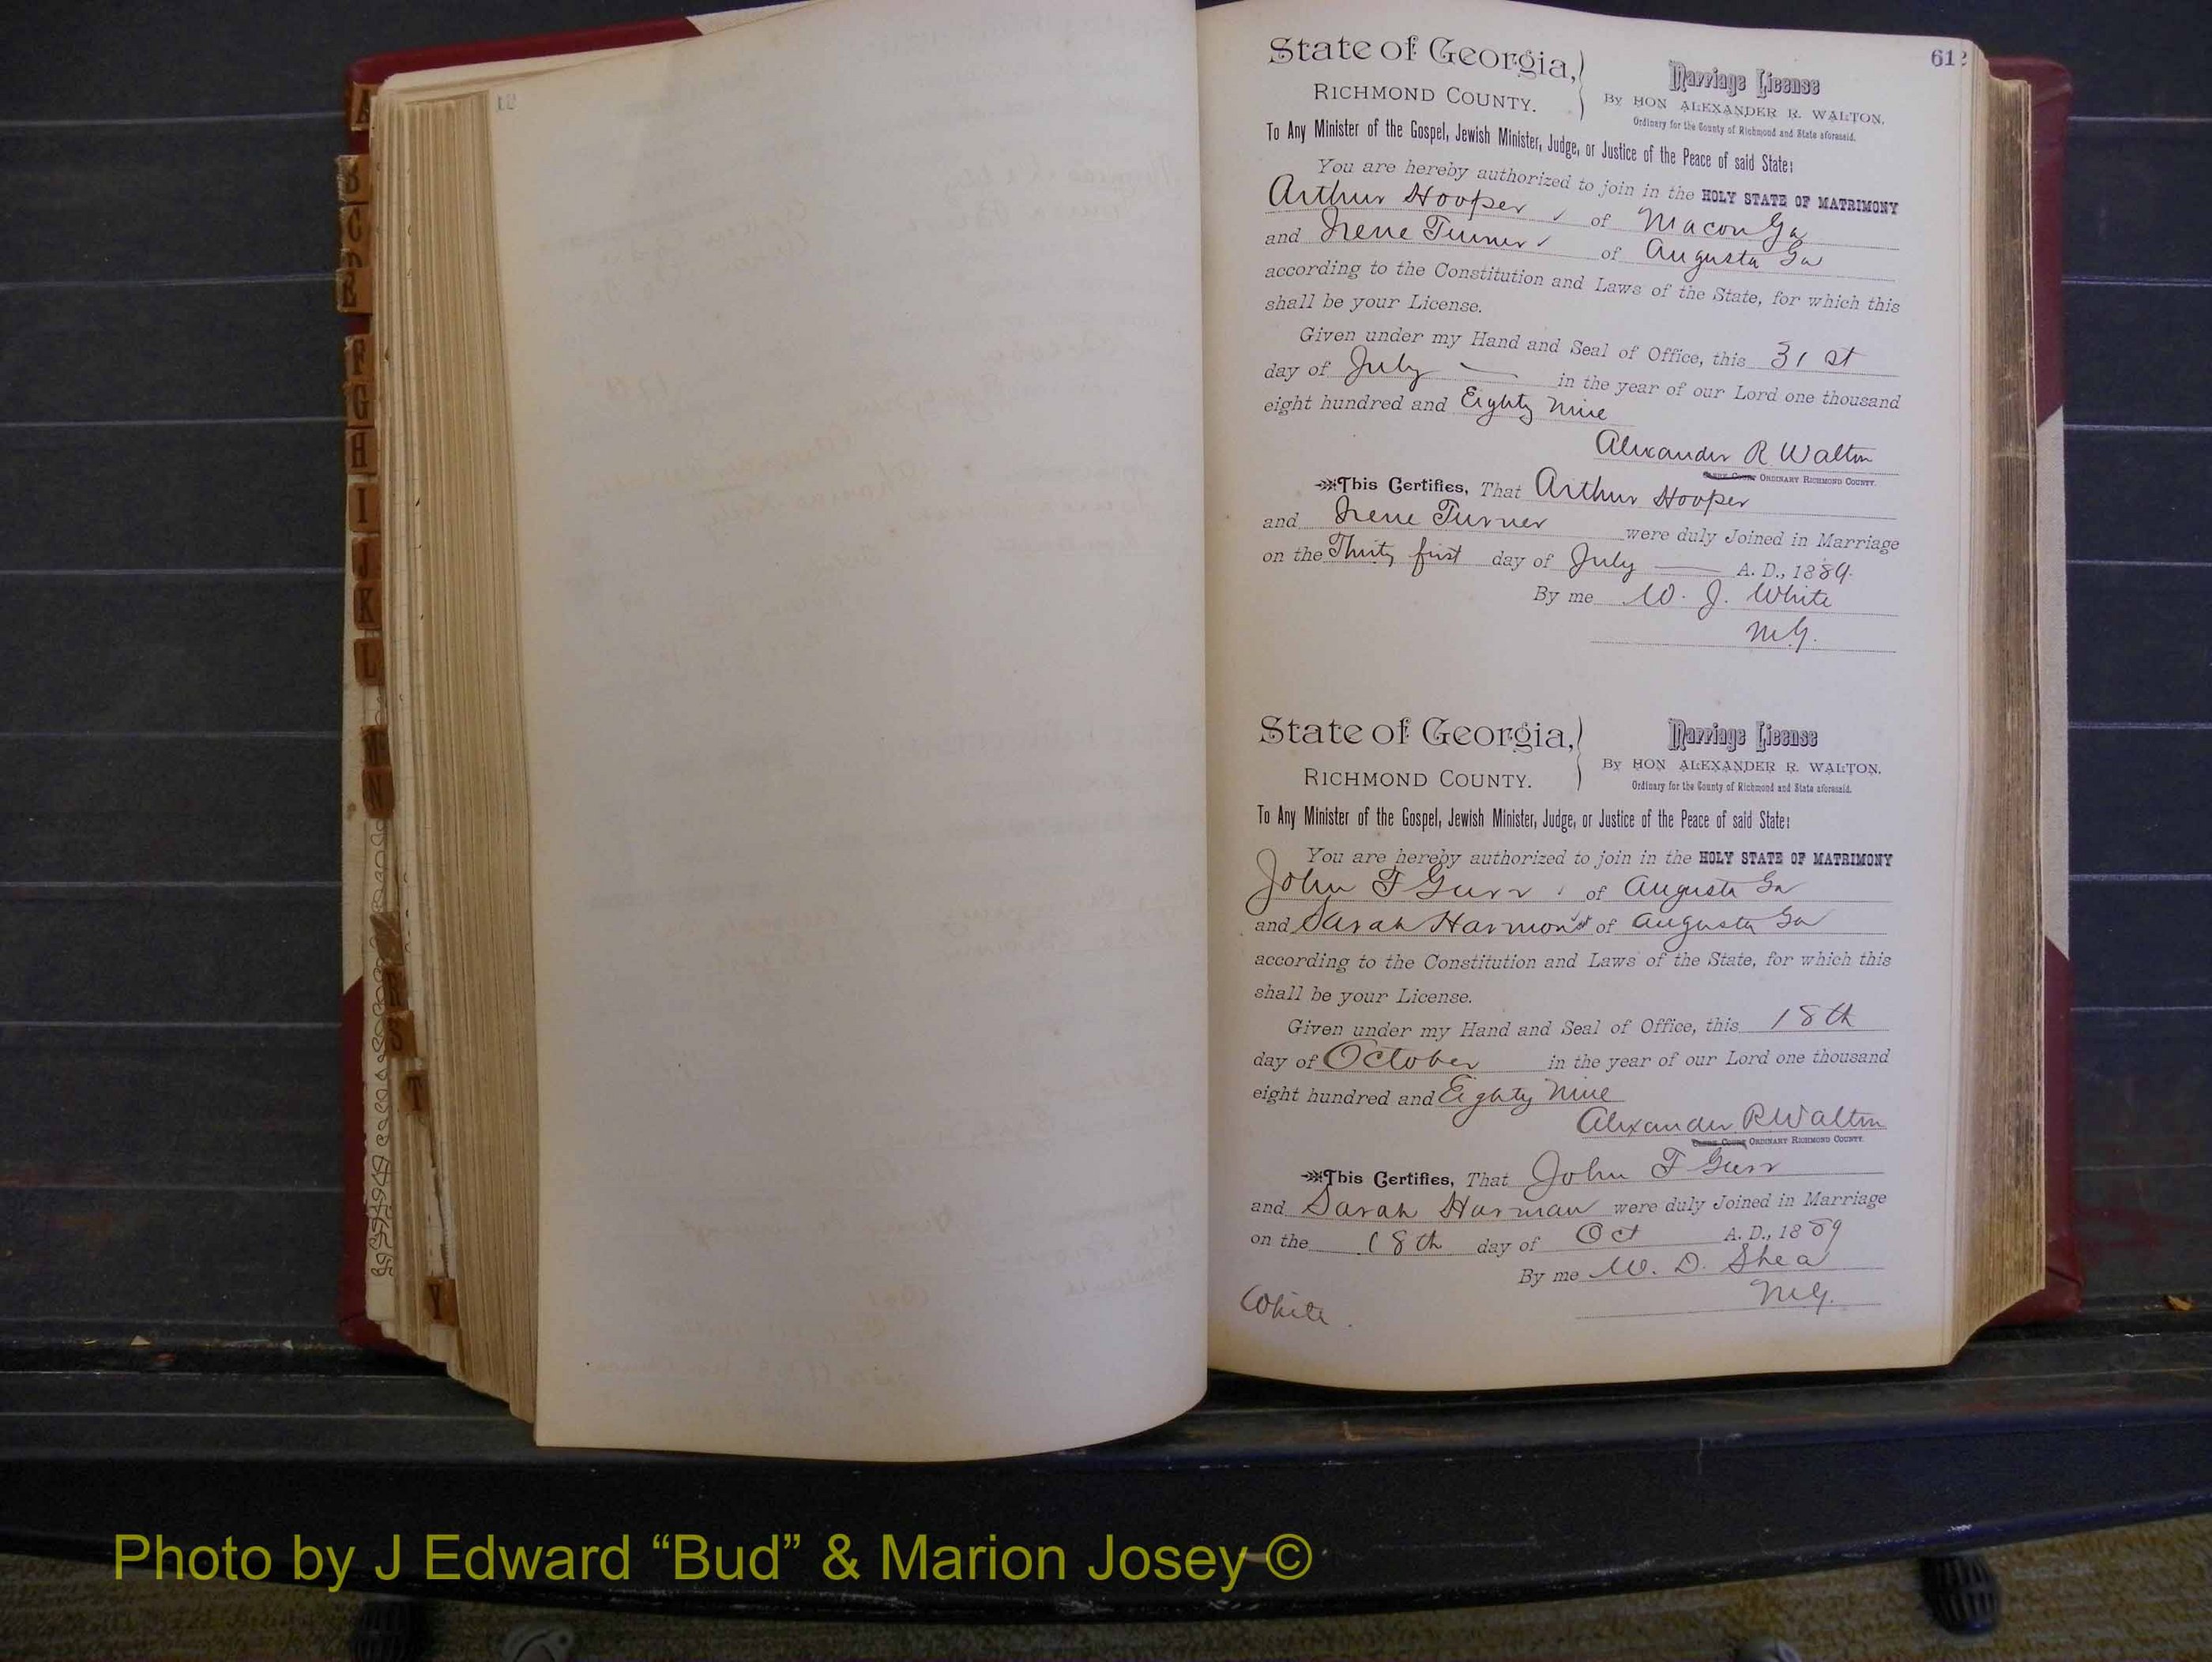 A
B
C
F
G
H
I
J
K
L
N
R
S
T
Y
612
State of Georgia,
RICHMOND COUNTY.
Marriage License
By HON ALEXANDER R. WALTON,
Ordinary for the County of Richmond and State aforesaid.
To Any Minister of the Gospel, Jewish Minister, Judge, or Justice of the Peace of said State:
You are hereby authorized to join in the HOLY STATE OF MATRIMONY
Arthur Hooper of Macon Ga
and Irene Turner of Augusta Ga
according to the Constitution and Laws of the State, for which this
shall be your License.
Given under my Hand and Seal of Office, this 31st
day of July in the year of our Lord one thousand
eight hundred and Eighty Nine
Alexander R Walton
CLERK COURT ORDINARY RICHMOND COUNTY.
This Certifies, That Arthur Hooper
and Irene Turner were duly Joined in Marriage
on the Thirty first day of July A. D., 1889.
By me W. J. White
M.G.
State of Georgia,
RICHMOND COUNTY.
Marriage License
By HON ALEXANDER R. WALTON,
Ordinary for the County of Richmond and State aforesaid.
To Any Minister of the Gospel, Jewish Minister, Judge, or Justice of the Peace of said State:
You are hereby authorized to join in the HOLY STATE OF MATRIMONY
John F Gurr of Augusta Ga
and Sarah Harmon of Augusta Ga
according to the Constitution and Laws of the State, for which this
shall be your License.
Given under my Hand and Seal of Office, this 18th
day of October in the year of our Lord one thousand
eight hundred and Eighty Nine
Alexander R Walton
CLERK COURT ORDINARY RICHMOND COUNTY.
This Certifies, That John F Gurr
and Sarah Harman were duly Joined in Marriage
on the 18th day of Oct A. D., 1889
By me W. D. Shea
M.G.
White.
Photo by J Edward “Bud” & Marion Josey ©